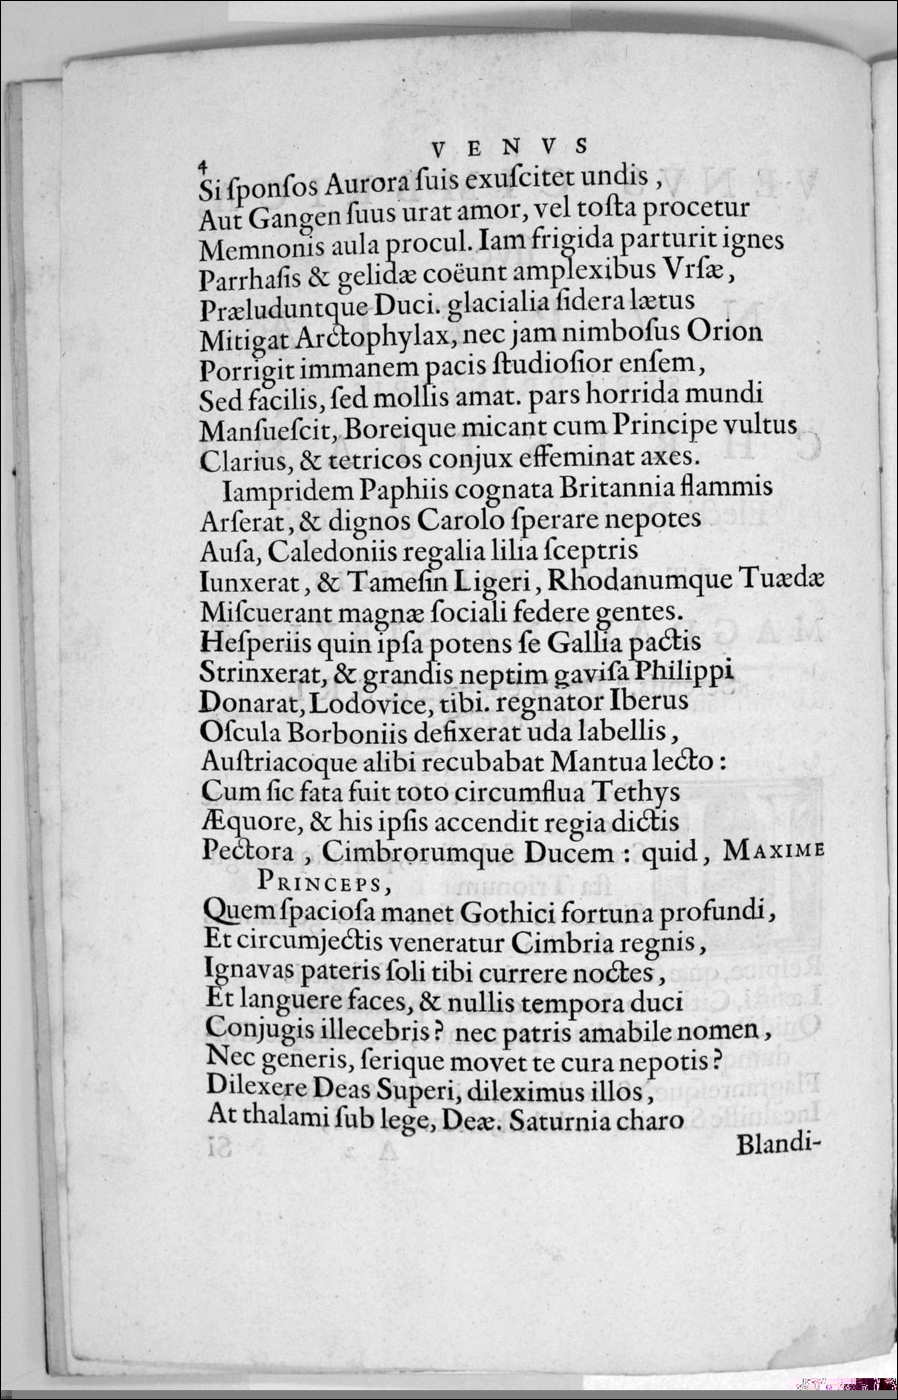 V E N V S
4
Si ſponſos Aurora ſuis exuſcitet undis ,
Aut Gangen ſuus urat amor, vel toſta procetur
Memnonis aula procul. Iam frigida parturit ignes
Parrhaſis & gelidæ coëunt amplexibus Vrſæ ,
Præluduntque Duci. glacialia ſidera lætus
Mitigat Arctophylax, nec jam nimboſus Orion
Porrigit immanem pacis ſtudioſior enſem ,
Sed facilis, ſed mollis amat. pars horrida mundi
Manſueſcit, Boreique micant cum Principe vultus
Clarius, & tetricos conjux effeminat axes.
Iampridem Paphiis cognata Britannia flammis
Arſerat , & dignos Carolo ſperare nepotes
Auſa, Caledoniis regalia lilia ſceptris
Iunxerat , & Tameſin Ligeri , Rhodanumque Tuædæ
Miſcuerant magnæ ſociali federe gentes.
Heſperiis quin ipſa potens ſe Gallia pactis
Strinxerat, & grandis neptim gaviſa Philippi
Donarat, Lodovice, tibi. regnator Iberus
Oſcula Borboniis defixerat uda labellis ,
Auſtriacoque alibi recubabat Mantua lecto :
Cum ſic fata fuit toto circumflua Tethys
Æquore, & his ipſis accendit regia dictis
Pectora , Cimbrorumque Ducem : quid , MAXIME
PRINCEPS ,
Quem ſpacioſa manet Gothici fortuna profundi ,
Et circumjectis veneratur Cimbria regnis ,
Ignavas pateris ſoli tibi currere noctes ,
Et languere faces, & nullis tempora duci
Conjugis illecebris ? nec patris amabile nomen ,
Nec generis, ſerique movet te cura nepotis ?
Dilexere Deas Superi, dileximus illos ,
At thalami ſub lege, Deæ. Saturnia charo
Blandi-